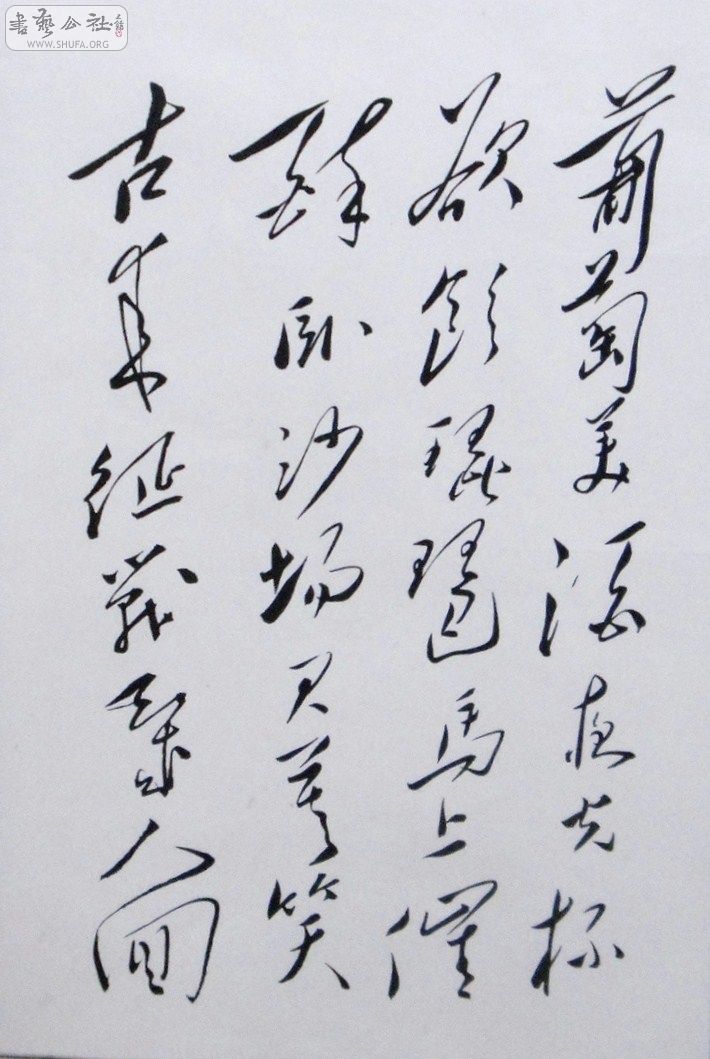 書藝公社
WWW.SHUFA.ORG
葡萄美酒夜光杯
欲飲琵琶馬上催
醉卧沙場君莫笑
古来征戰幾人回